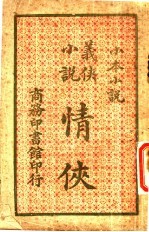 小本小說
義俠小說
情俠
商務印書館印行